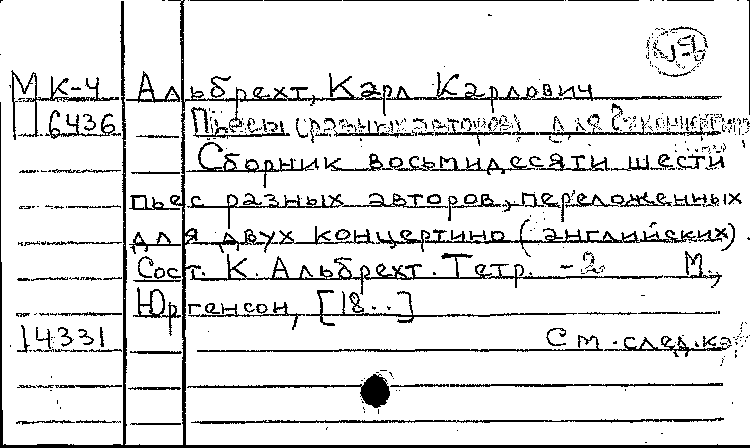 М К-4 Альбрехт, Карл Карлович
П 6436 Пьесы (разных авторов) для 2х концертино
Сборник восьмидесяти шести
пьес разных авторов, переложенных
для двух концертино (английских).
Сост. К. Альбрехт. Тетр. -2 М.,
Юргенсон, [18..]
14331 См. след. к